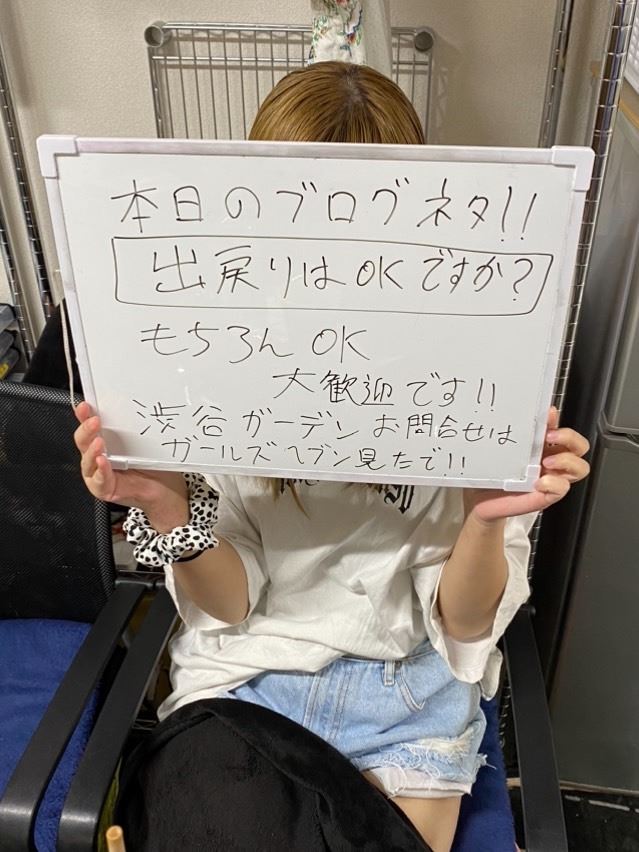 本日のブログネタ!!
出戻りはOKですか?
もちろんOK
大歓迎です!!
渋谷ガーデンお問合せは
ガールズヘブン見たで!!